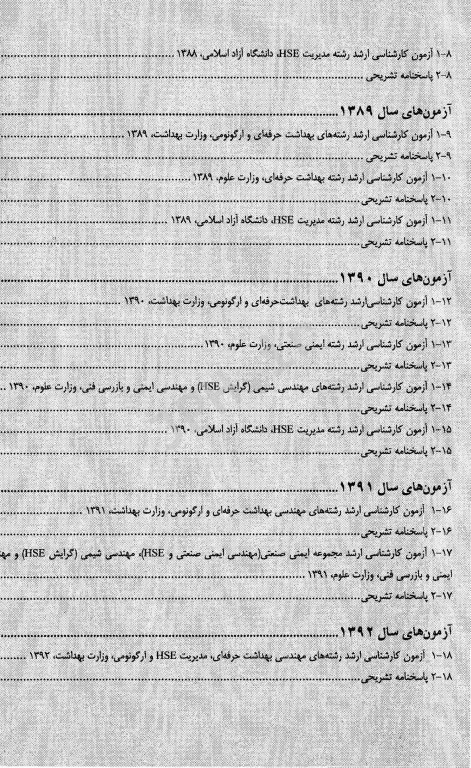 ۱-۸ آزمون کارشناسی ارشد رشته مدیریت HSE، دانشگاه آزاد اسلامی، ۱۳۸۸ ........................
۲-۸ پاسخنامه تشریحی ........................
آزمون‌های سال ۱۳۸۹ ........................
۱-۹ آزمون کارشناسی ارشد رشته‌های بهداشت حرفه‌ای و ارگونومی، وزارت بهداشت، ۱۳۸۹ ........................
۲-۹ پاسخنامه تشریحی ........................
۱-۱۰ آزمون کارشناسی ارشد رشته بهداشت حرفه‌ای، وزارت علوم، ۱۳۸۹ ........................
۲-۱۰ پاسخنامه تشریحی ........................
۱-۱۱ آزمون کارشناسی ارشد رشته مدیریت HSE، دانشگاه آزاد اسلامی، ۱۳۸۹ ........................
۲-۱۱ پاسخنامه تشریحی ........................
آزمون‌های سال ۱۳۹۰ ........................
۱-۱۲ آزمون کارشناسی‌ارشد رشته‌های بهداشت‌حرفه‌ای و ارگونومی، وزارت بهداشت، ۱۳۹۰ ........................
۲-۱۲ پاسخنامه تشریحی ........................
۱-۱۳ آزمون کارشناسی ارشد رشته ایمنی صنعتی، وزارت علوم، ۱۳۹۰ ........................
۲-۱۳ پاسخنامه تشریحی ........................
۱-۱۴ آزمون کارشناسی ارشد رشته‌های مهندسی شیمی (گرایش HSE) و مهندسی ایمنی و بازرسی فنی، وزارت علوم، ۱۳۹۰ ..
۲-۱۴ پاسخنامه تشریحی ........................
۱-۱۵ آزمون کارشناسی ارشد رشته مدیریت HSE، دانشگاه آزاد اسلامی، ۱۳۹۰ ........................
۲-۱۵ پاسخنامه تشریحی ........................
آزمون‌های سال ۱۳۹۱ ........................
۱-۱۶ آزمون کارشناسی ارشد رشته‌های مهندسی بهداشت حرفه‌ای و ارگونومی، وزارت بهداشت، ۱۳۹۱ ........................
۲-۱۶ پاسخنامه تشریحی ........................
۱-۱۷ آزمون کارشناسی ارشد مجموعه ایمنی صنعتی(مهندسی ایمنی صنعتی و HSE)، مهندسی شیمی (گرایش HSE) و مه
ایمنی و بازرسی فنی، وزارت علوم، ۱۳۹۱ ........................
۲-۱۷ پاسخنامه تشریحی ........................
آزمون‌های سال ۱۳۹۲ ........................
۱-۱۸ آزمون کارشناسی ارشد رشته‌های مهندسی بهداشت حرفه‌ای، مدیریت HSE و ارگونومی، وزارت بهداشت، ۱۳۹۲ ........
۲-۱۸ پاسخنامه تشریحی ........................